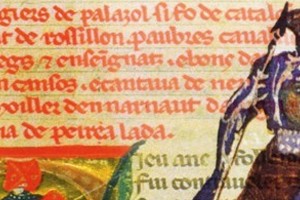 giers de palazol si fo de catalo
at de rossillon. paubres caval
egs et enseignat. e bons d
n canses. e cantava de ner
voiller den narnaut da
na de peirea lada.
Jeu anc
fui